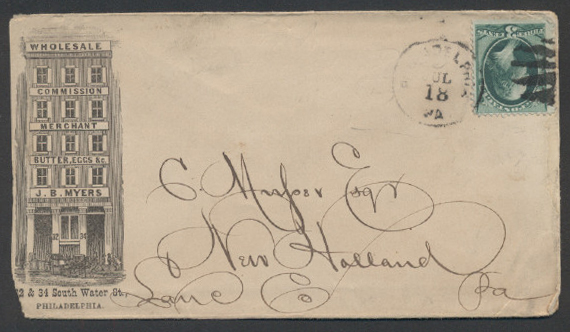 WHOLESALE
COMMISSION
MERCHANT
BUTTER, EGGS &c.
J. B. MYERS
2 & 34 South Water St.,
PHILADELPHIA.
PHILADELPHIA
JUL
18
PA
3
C. Esqr
New Holland
Lanc Co Pa